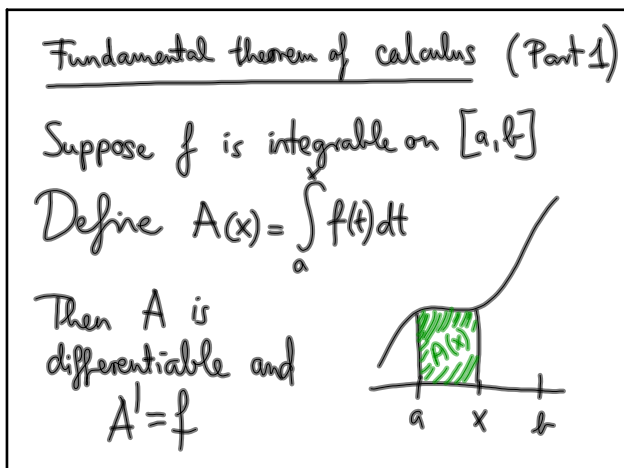 Fundamental theorem of calculus (Part 1)
Suppose f is integrable on [a,b]
Define A(x) = ∫ₐˣ f(t)dt
Then A is
differentiable and
A' = f
A(x)
a x b